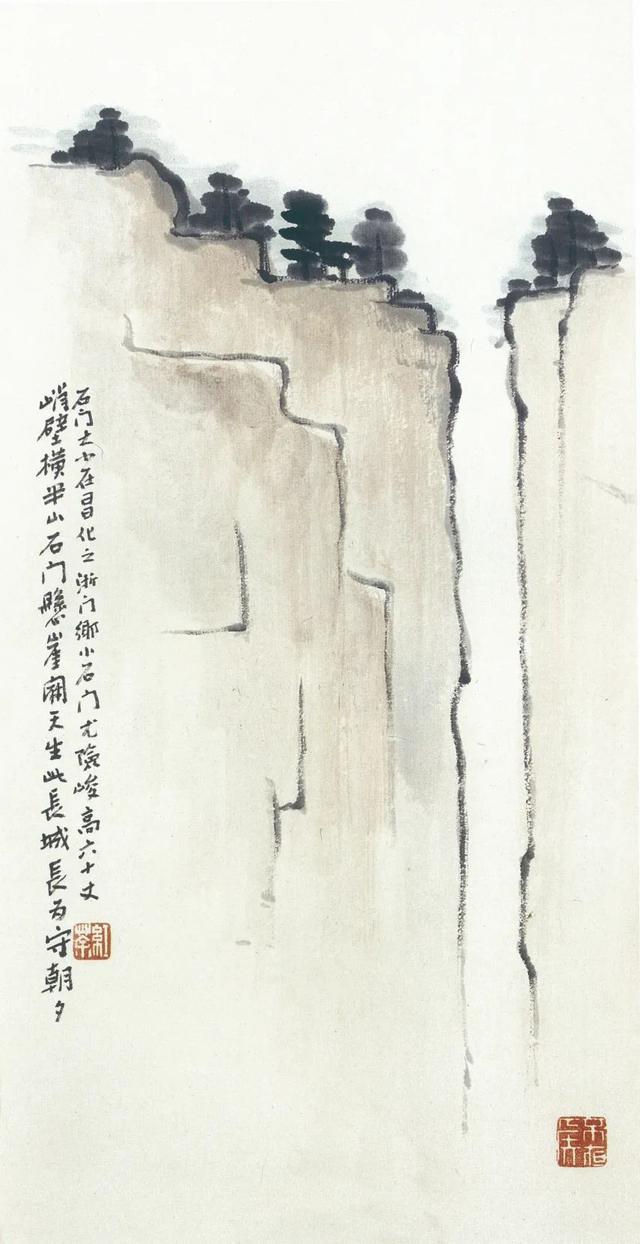 石门大小在昌化之浙门鄉小石门尤險峻高六十丈
峭壁橫半山石门懸崖天生此長城長为守朝夕